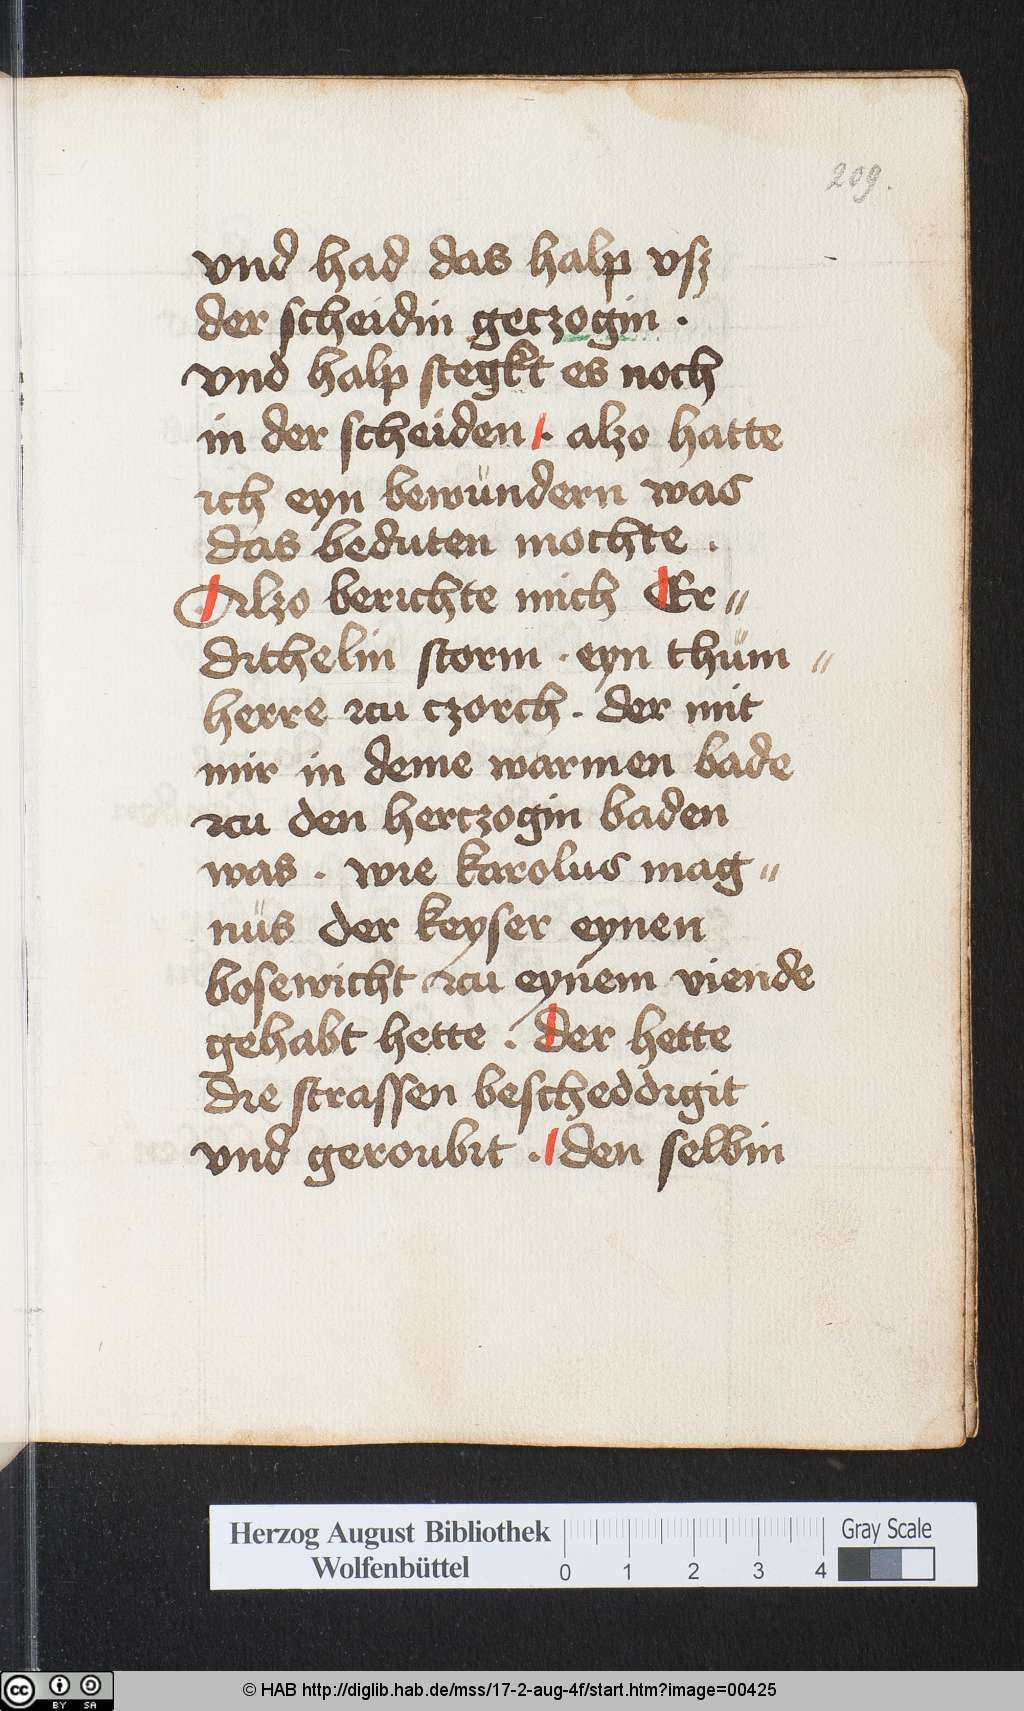 209.
vnd had das halp vsz
der scheidin geczogin .
vnd halp stegkt es noch
in der scheiden . alzo hatte
ich eyn bewündern was
das beduten mochte .
Alzo berichte mich Er〃
dithelin storm . eyn thüm〃
herre zcu czorch . der mit
mir in deme warmen bade
zcu den hertzogin baden
was . wie karolus mag〃
nüs der keyser eynen
bosewicht zcu eynem viende
gehabt hette . der hette
die strassen bescheddigit
vnd geroubit . den selbin
Herzog August Bibliothek
Wolfenbüttel
0 1 2 3 4
Gray Scale
cc BY SA
© HAB http://diglib.hab.de/mss/17-2-aug-4f/start.htm?image=00425